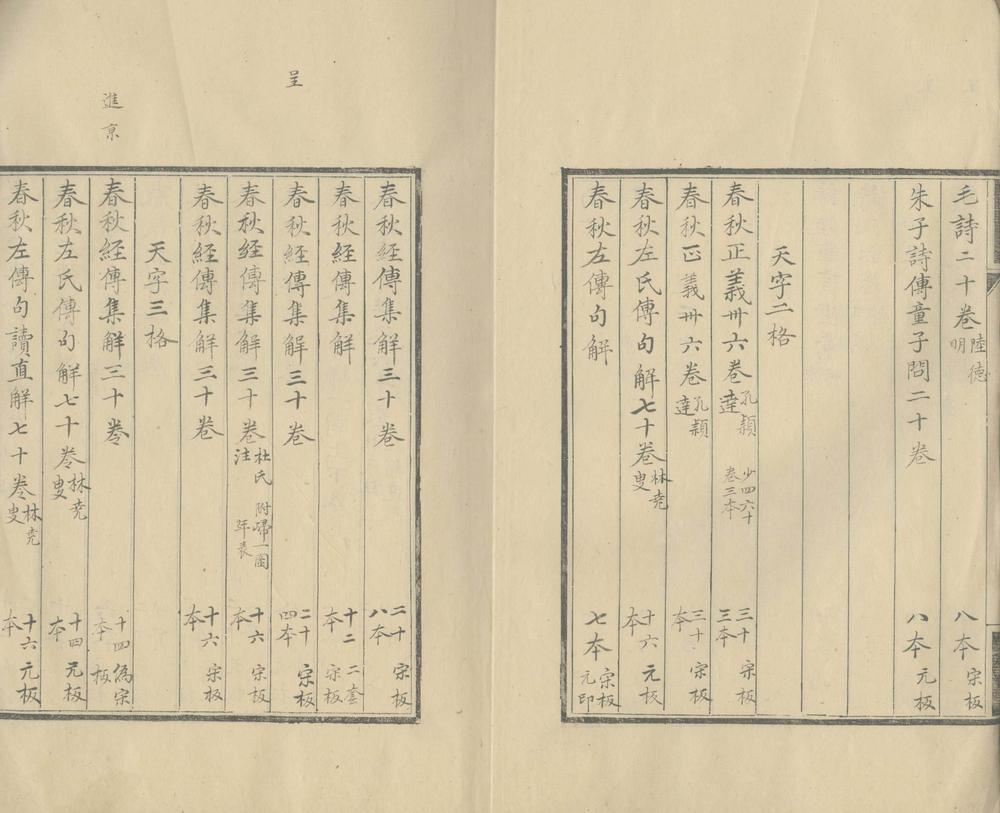 毛詩二十卷 陸德明 八本 宋板
朱子詩傳童子問二十卷 八本 元板
天字二格
春秋正義卅六卷 孔穎達 少四六十卷三本 三十三本 宋板
春秋正義卅六卷 孔穎達 三十本 宋板
春秋左氏傳句解七十卷 林尭叟 十六本 元板
春秋左傳句解 七本 宋板元印
春秋経傳集解三十卷 二十八本 宋板
春秋経傳集解 十二本 二套宋板
呈
春秋經傳集解三十卷 二十四本 宋板
春秋経傳集解三十卷 杜氏注 附歸一圖年表 十六本 宋板
春秋経傳集解三十卷 十六本 宋板
天字三格
進京
春秋経傳集解三十卷 十四本 偽宋板
春秋左氏傳句解七十卷 林尭叟 十四本 元板
春秋左傳句讀直解七十卷 林尭叟 十六本 元板